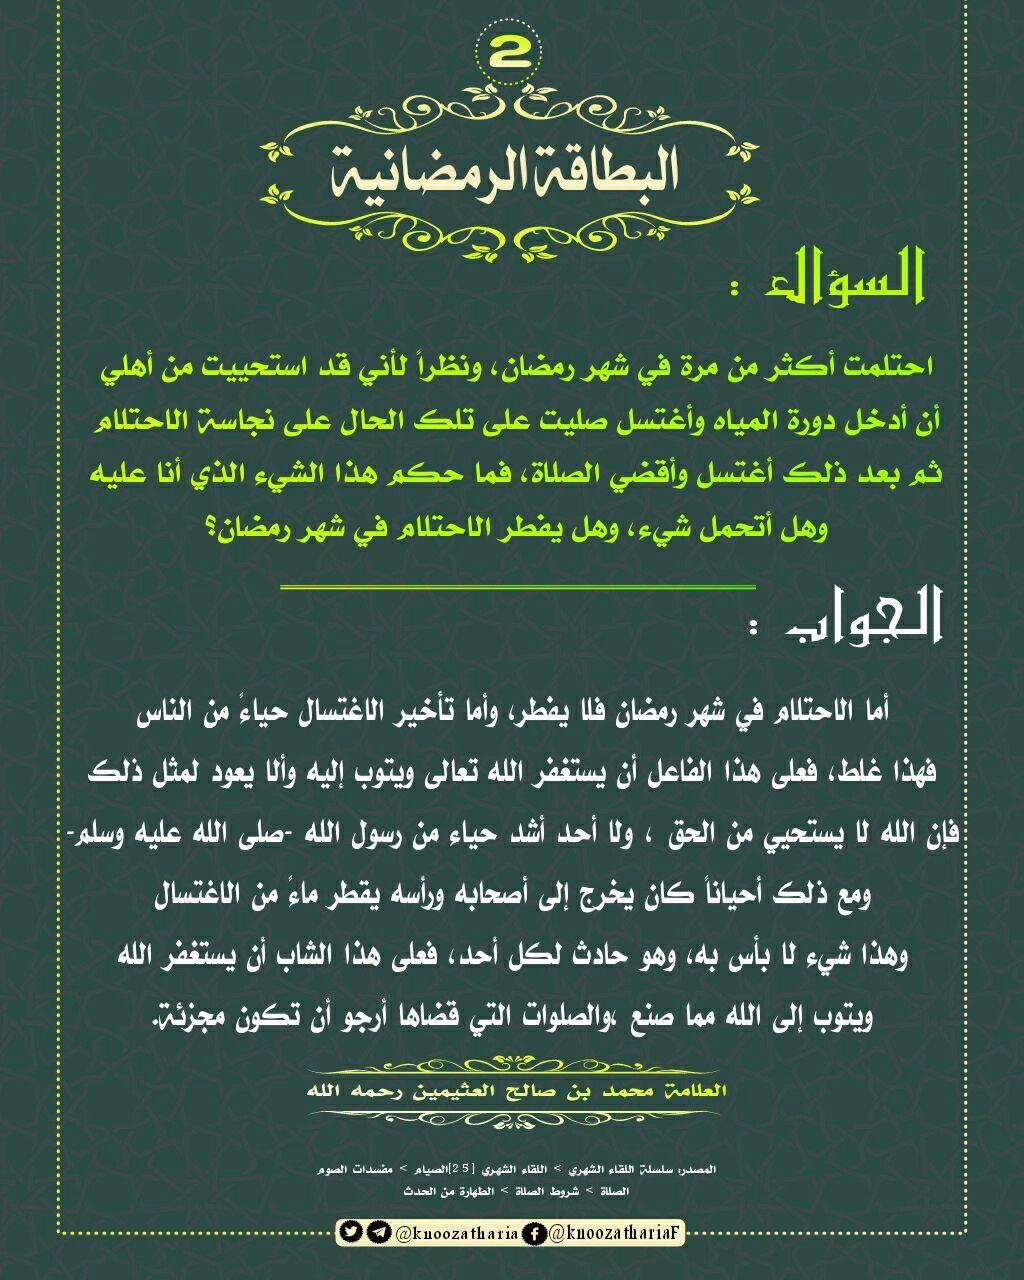 2
البطاقة الرمضانية
السؤال :
احتلمت أكثر من مرة في شهر رمضان، ونظراً لأني قد استحييت من أهلي
أن أدخل دورة المياه وأغتسل صليت على تلك الحال على نجاسة الاحتلام
ثم بعد ذلك أغتسل وأقضي الصلاة، فما حكم هذا الشيء الذي أنا عليه
وهل أتحمل شيء، وهل يفطر الاحتلام في شهر رمضان؟
الجواب :
أما الاحتلام في شهر رمضان فلا يفطر، وأما تأخير الاغتسال حياءً من الناس
فهذا غلط، فعلى هذا الفاعل أن يستغفر الله تعالى ويتوب إليه وألا يعود لمثل ذلك
فإن الله لا يستحيي من الحق ، ولا أحد أشد حياء من رسول الله -صلى الله عليه وسلم-
ومع ذلك أحياناً كان يخرج إلى أصحابه ورأسه يقطر ماءً من الاغتسال
وهذا شيء لا بأس به، وهو حادث لكل أحد، فعلى هذا الشاب أن يستغفر الله
ويتوب إلى الله مما صنع ،والصلوات التي قضاها أرجو أن تكون مجزئة.
العلامة محمد بن صالح العثيمين رحمه الله
المصدر: سلسلة اللقاء الشهري > اللقاء الشهري [25]الصيام > مفسدات الصوم
الصلاة > شروط الصلاة > الطهارة من الحدث
@knoozatharia @knoozathariaF